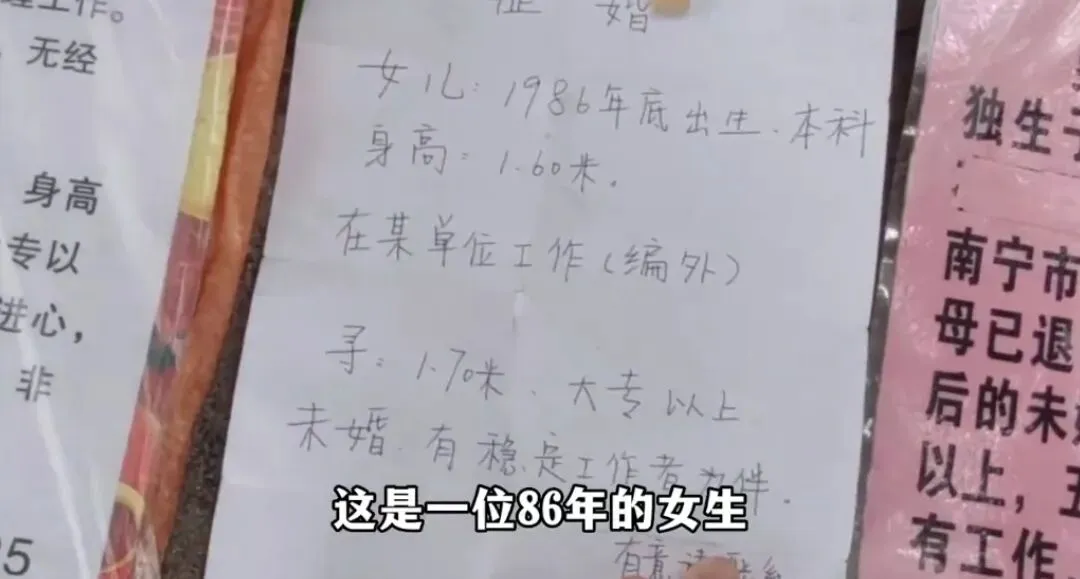 理工作。
无经
身高
专以
进心，
非
5
征 婚
女儿：1986年底出生、本科
身高：1.60米．
在某单位工作（编外）
寻：1.70米、大专以上
未婚．有稳定工作者为伴．
有意请联系
这是一位86年的女生
独生子
南宁市
母已退
后的未婚
以上，五
有工作